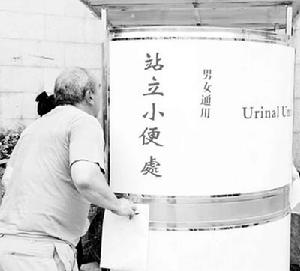 站立小便處
男女通用
Urinal